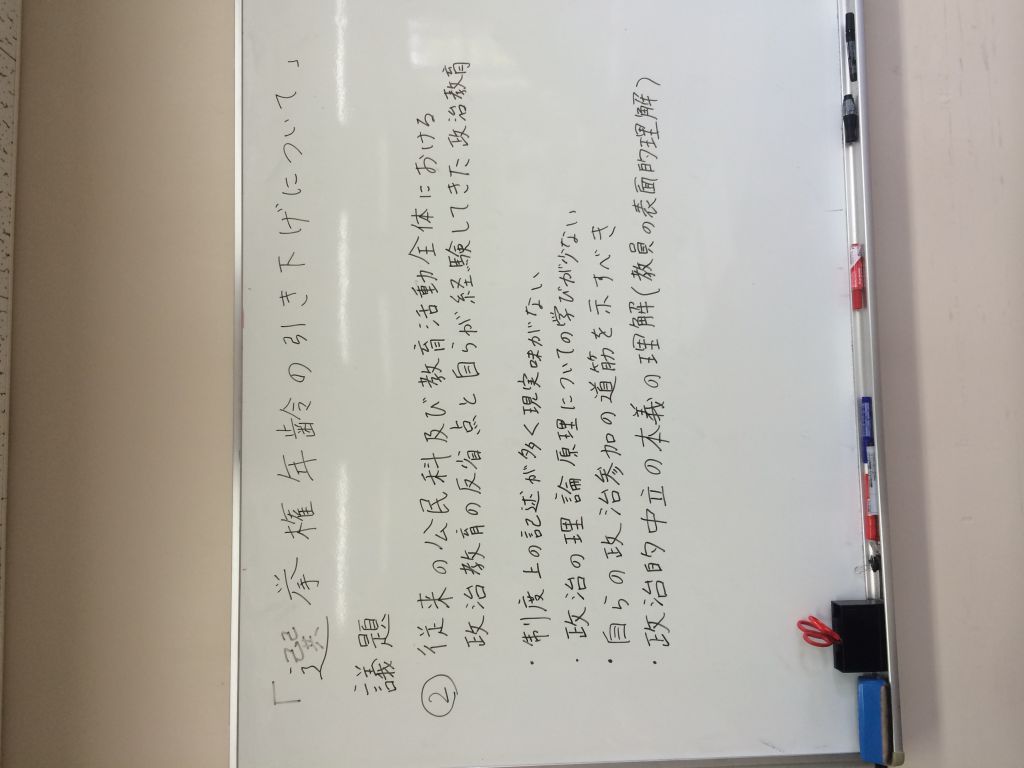 「選挙権年齢の引き下げについて」
議題
② 従来の公民科及び教育活動全体における
政治教育の反省点と自らが経験してきた政治教育
・制度上の記述が多く現実味がない
・政治の理論原理についての学びが少ない
・自らの政治参加の道筋を示すべき
・政治的中立の本義の理解(教員の表面的理解)